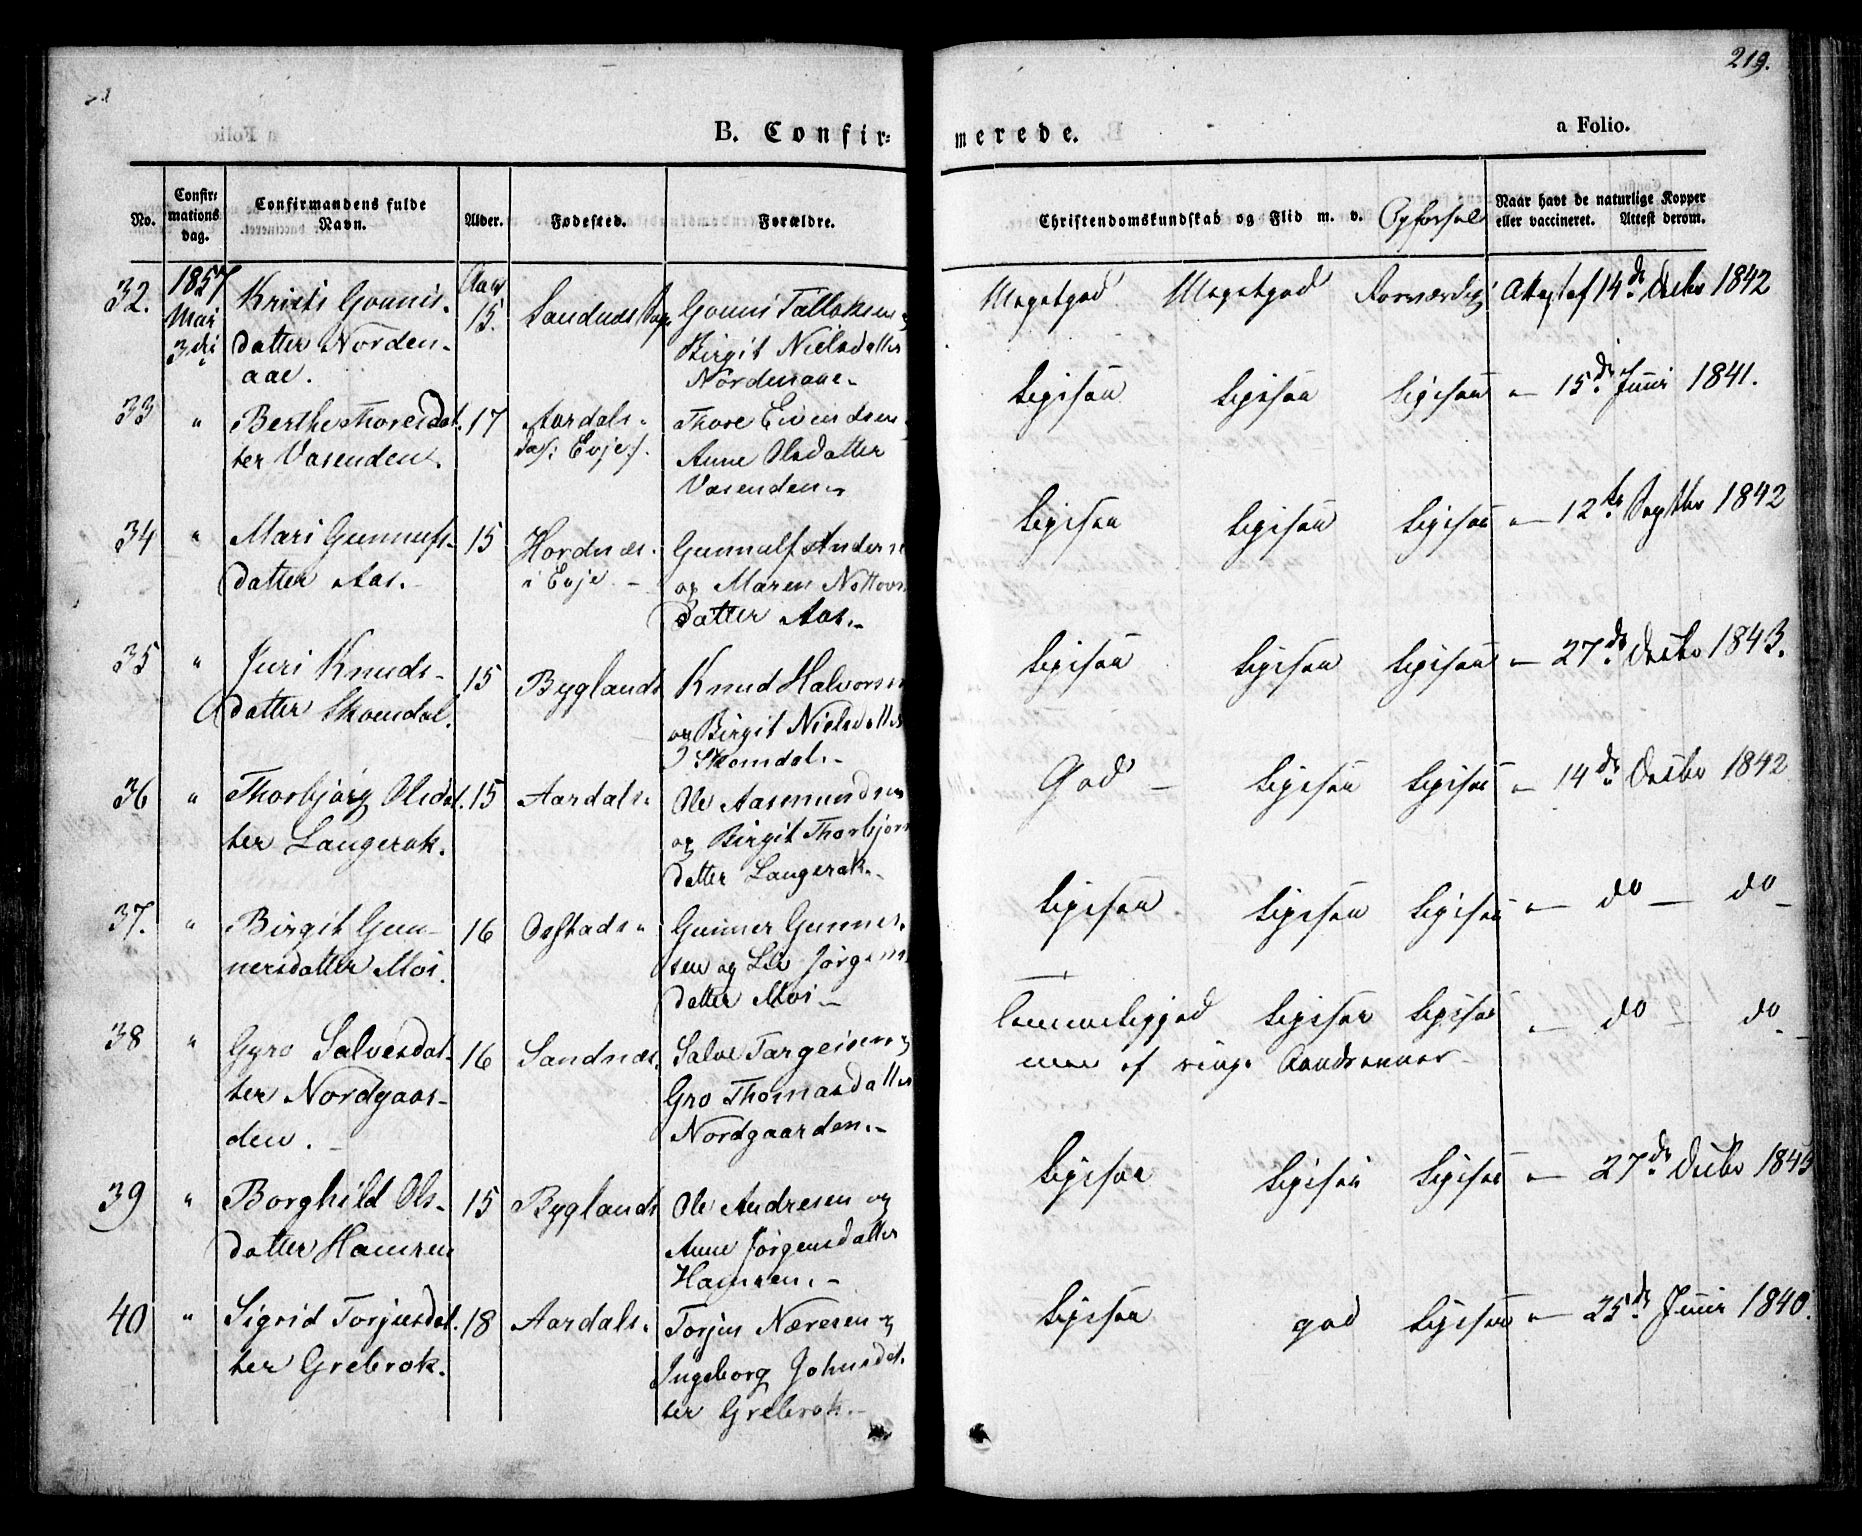 219.
B. Confir=merede.
a Folio.
No.
Confir=
mations
dag.
Confirmandens fulde
Navn.
Alder.
Fødested.
Forældre.
Christendomskundskab og Flid m. v. Opførsel
Naar havt de naturlige Kopper
eller vaccineret. Attest derom.
32. 1857 Mai 3die
Gunnis-
datter Norden-
aae.
Aar 15.
Sandnæs Sogn
Birgit Nielsdatter
Nordenaae.
Megetgod Megetgod Roesværdig Attest af 14de Decbr 1842
33 " Berthe Thoresdat-
ter Vasenden.
17
Aardals-
Evje
Thore Eivendsen
Anne Olsdatter
Vasenden.
Ligesaa Ligesaa Ligesaa — 15de Juni 1841.
34 " Mari Gunnufs-
datter Aas.
15
Hordnæs
i Evje
Gunnulf Anders
og Maren
datter Aas.
Ligesaa Ligesaa Ligesaa — 12te Septbr 1842
35 " Juri Knuds-
datter Skomdal.
15
Byglands
Knud Halvorsen
og Birgit Nielsdatter
Skomdal.
Ligesaa Ligesaa Ligesaa — 27de Decbr 1843.
36 " Thorbjørg Olsdat-
ter Langerak.
15
Aardals
Ole Aasmundsen
og Birgit Thorbjørn
datter Langerak.
God — Ligesaa Ligesaa — 14de Decbr 1842
37. " Birgit Gun-
nersdatter Moi.
16
Østads
Gunner Gunner-
sen og Liv Jørgens
datter Moi
Ligesaa Ligesaa Ligesaa — do — do —
38 " Gyro Salvesdat-
ter Nordgaar-
den.
16
Sandnæs.
Salve Targeisen og
Gro Thomasdatter
Nordgaarden.
Temmeliggod Ligesaa Ligesaa — do — do —
men af ringe Aandsevner
39 " Borghild Ols-
datter Hamren
15
Byglands
Ole Andresen og
Anne Jørgensdatter
Hamren.
Ligesaa Ligesaa Ligesaa — 27de Decbr 1843
40 " Sigrid Torjusdat-
ter Grebrok.
18
Aardals.
Torjus Næresen og
Ingeborg Johnsdat-
ter Grebrok.
Ligesaa god Ligesaa — 25de Juni 1840.